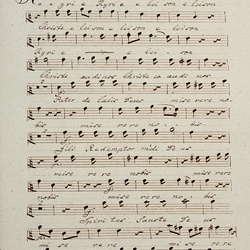 Kyrie Kyrie eleison eleison
Christe eleison eleison
Kyrie eleison
Christe audi nos Christe exaudi nos
Pater de Caelis Deus miserere no
bis miserere no bis
Fili Redemptor mundi Deus
miserere nobis miserere
nobis miserere nobis
Spiritus Sancte Deus
miserere miserere